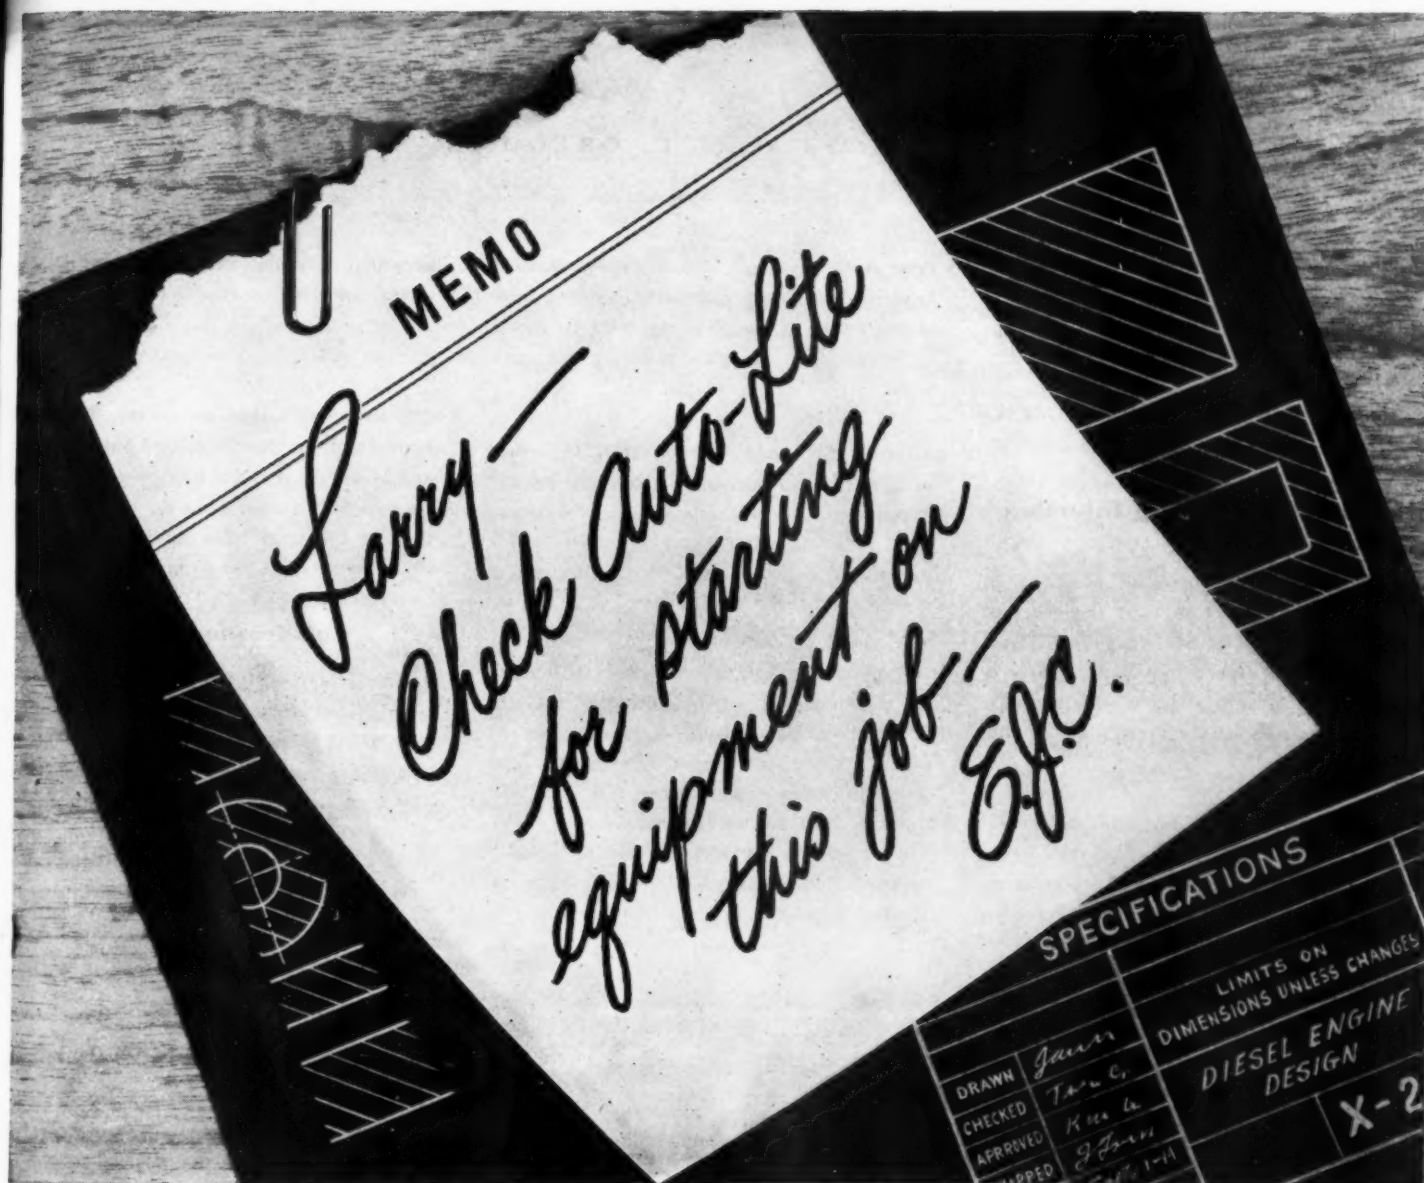 MEMO
Larry—
Check Auto-Lite
for starting
equipment on
this job—
E.J.C.
SPECIFICATIONS
LIMITS ON
DIMENSIONS UNLESS CHANGES
DIESEL ENGINE
DESIGN
X-2
DRAWN
CHECKED
APRROVED